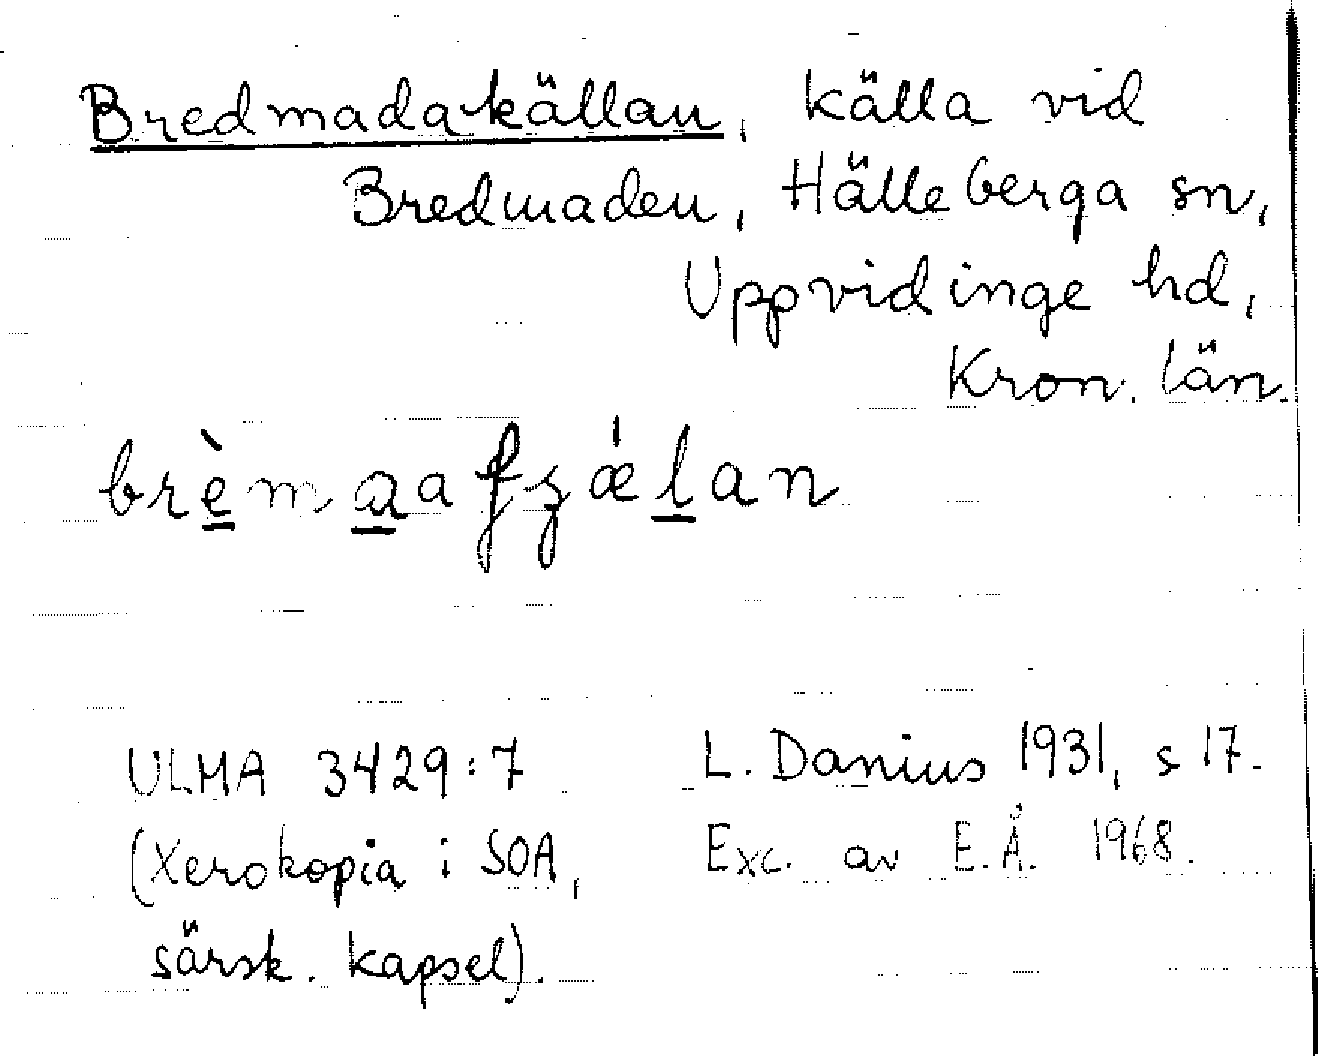 Bredmadakällan, källa vid
Bredmaden, Hälleberga sn,
Uppvidinge hd,
Kron. län.
brèmaafʒǽlan
ULMA 3429:7
(Xerokopia i SOA,
särsk. kapsel).
L. Danius 1931, s 17.
Exc. av E.Å. 1968.